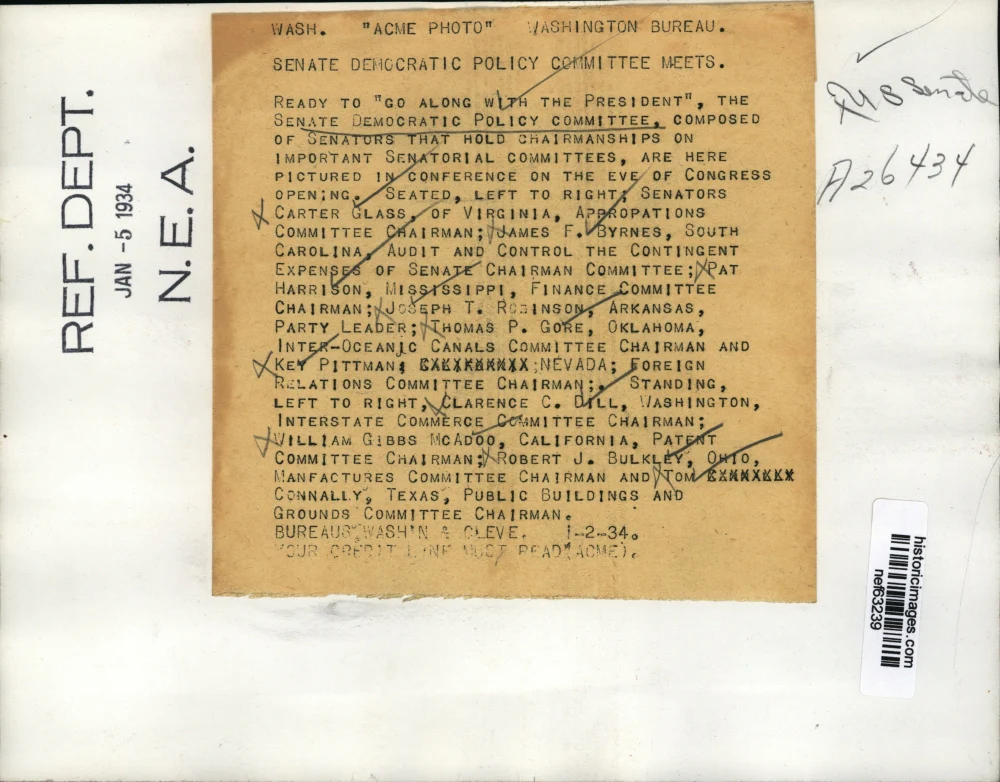 WASH. "ACME PHOTO" WASHINGTON BUREAU.
SENATE DEMOCRATIC POLICY COMMITTEE MEETS.
READY TO "GO ALONG WITH THE PRESIDENT", THE
SENATE DEMOCRATIC POLICY COMMITTEE, COMPOSED
OF SENATORS THAT HOLD CHAIRMANSHIPS ON
IMPORTANT SENATORIAL COMMITTEES, ARE HERE
PICTURED IN CONFERENCE ON THE EVE OF CONGRESS
OPENING. SEATED, LEFT TO RIGHT; SENATORS
CARTER GLASS, OF VIRGINIA, APPROPATIONS
COMMITTEE CHAIRMAN; JAMES F. BYRNES, SOUTH
CAROLINA, AUDIT AND CONTROL THE CONTINGENT
EXPENSES OF SENATE CHAIRMAN COMMITTEE; PAT
HARRISON, MISSISSIPPI, FINANCE COMMITTEE
CHAIRMAN; JOSEPH T. ROBINSON, ARKANSAS,
PARTY LEADER; THOMAS P. GORE, OKLAHOMA,
INTER-OCEANIC CANALS COMMITTEE CHAIRMAN AND
KEY PITTMAN; NEVADA; FOREIGN
RELATIONS COMMITTEE CHAIRMAN;. STANDING,
LEFT TO RIGHT, CLARENCE C. DILL, WASHINGTON,
INTERSTATE COMMERCE COMMITTEE CHAIRMAN;
WILLIAM GIBBS MCADOO, CALIFORNIA, PATENT
COMMITTEE CHAIRMAN; ROBERT J. BULKLEY, OHIO,
MANFACTURES COMMITTEE CHAIRMAN AND TOM
CONNALLY, TEXAS, PUBLIC BUILDINGS AND
GROUNDS COMMITTEE CHAIRMAN.
BUREAUS WASH'N & CLEVE. 1-2-34.
YOUR CREDIT LINE MUST READ (ACME).
REF. DEPT.
JAN -5 1934
N.E.A.
Senate
A26434
historicimages.com
nef63239